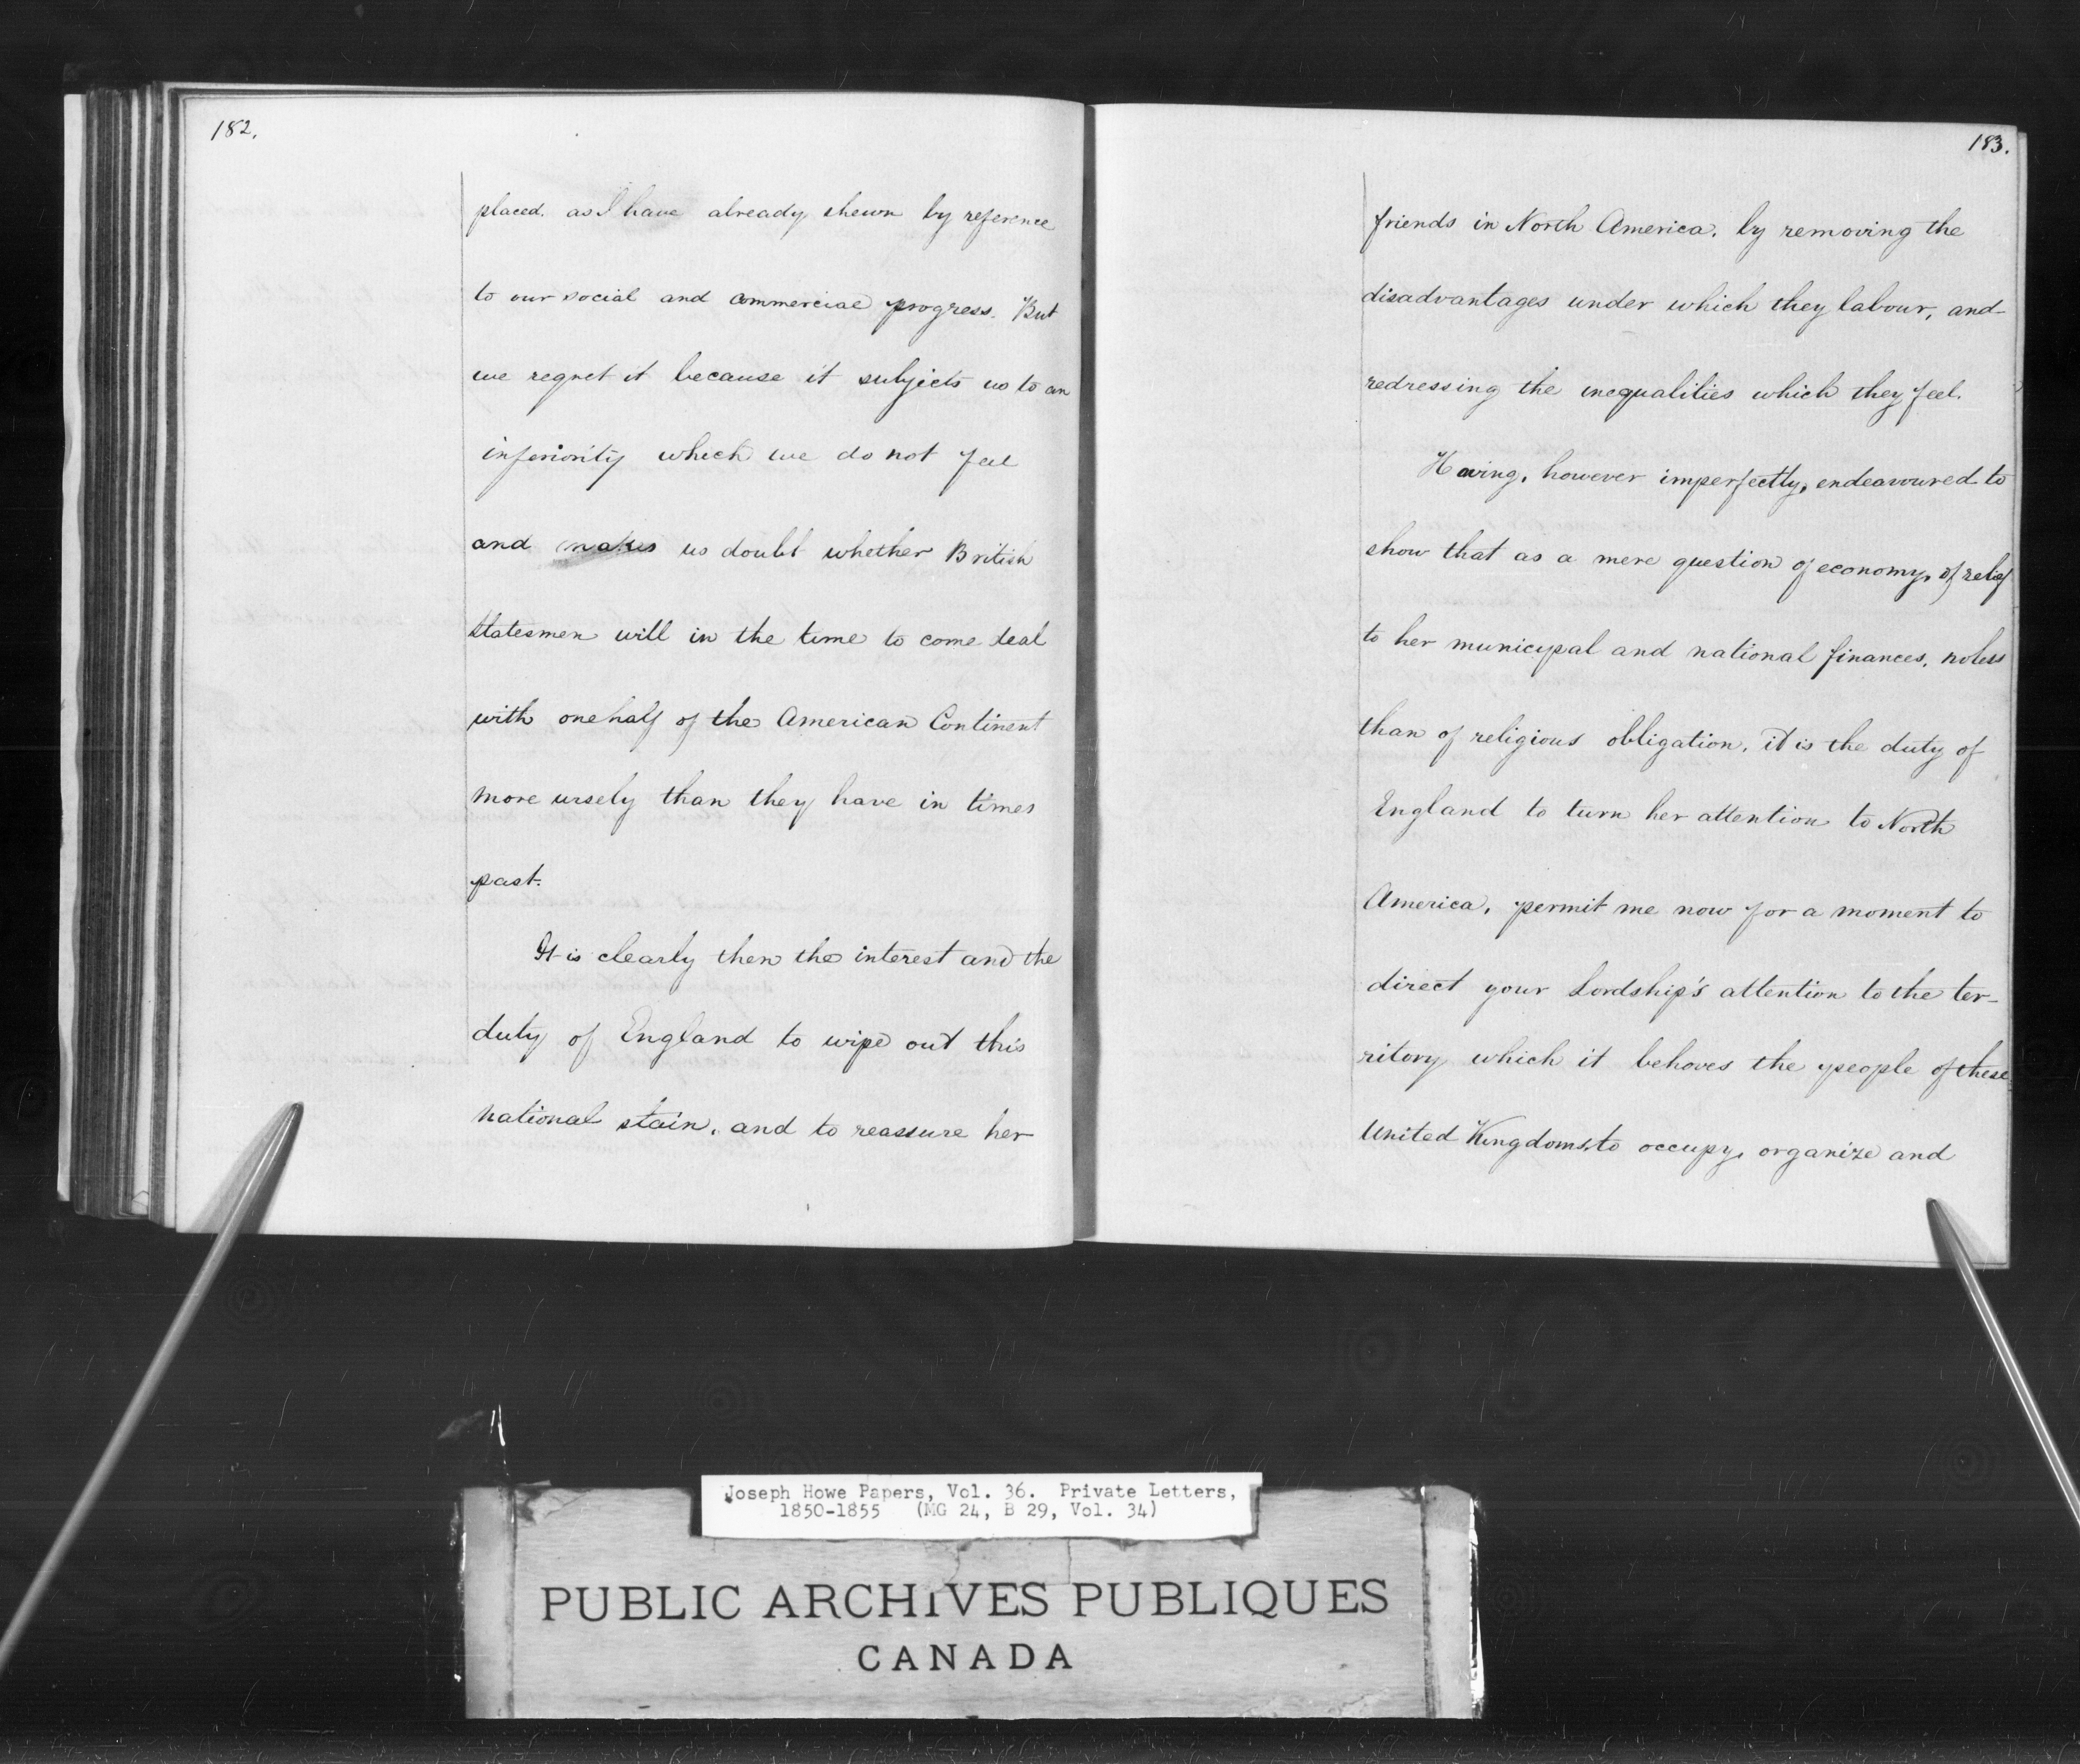 182.
placed. as I have already shewn by reference
to our social and commercial progress. But
we regret it because it subjects us to an
inferiority which we do not feel
and makes us doubt whether British
Statesmen will in the time to come deal
with one half of the American Continent
more wisely than they have in times
past.
It is clearly then the interest and the
duty of England to wipe out this
national stain, and to reassure her
183.
friends in North America, by removing the
disadvantages under which they labour, and
redressing the inequalities which they feel.
Having, however imperfectly, endeavoured to
show that as a mere question of economy, of relief
to her municipal and national finances, no less
than of religious obligation, it is the duty of
England to turn her attention to North
America, permit me now for a moment to
direct your Lordship's attention to the ter-
ritory which it behoves the people of these
United Kingdoms, to occupy, organize and
Joseph Howe Papers, Vol. 36. Private Letters,
1850-1855 (MG 24, B 29, Vol. 34)
PUBLIC ARCHIVES PUBLIQUES
CANADA